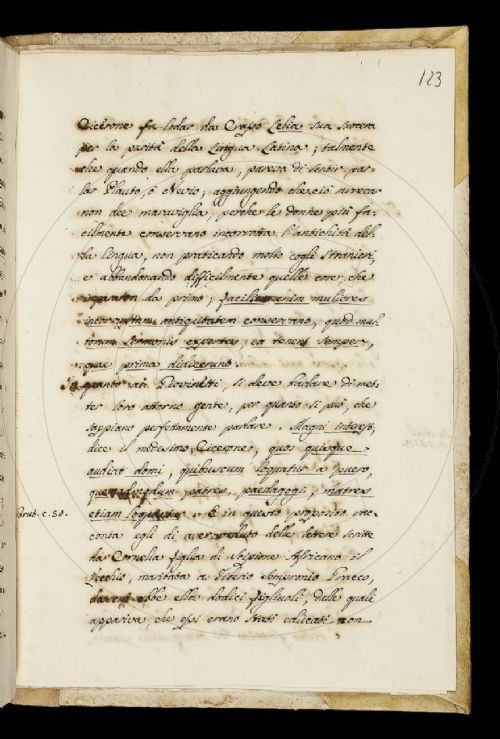 123
Cicerone fa lodar da Crasso Lelia sua suocera
per la purità della Lingua Latina; talmente
che quando ella parlava, pareva di sentir par-
lar Plauto, ò Nevio; aggiungendo che ciò arrecar
non dee maraviglia, perche le donne più fa-
cilmente conservano incorrotta l'antichità del-
la lingua, non praticando molto cogli stranieri,
e abbandonando difficilmente quelle cose, che
imparaton da primo; facilius enim mulieres
incorruptam antiquitatem conservant, quod mul-
torum sermonis expertes, ea tenent semper,
quae prima didicerunt.
In quanto ai Novinisti, si deve badare di met-
ter loro attorno gente, per quanto si può, che
sappiano perfettamente parlare. Magni interest,
dice il medesimo Cicerone, quos quisque
audiat domi, quibuscum loquatur a puero,
quemadmodum patres, paedagogi, matres
Brut. c. 58. etiam loquantur. E in questo proposito rac-
conta egli di aver veduto delle lettere scritte
da Cornelia figlia di Scipione Africano il
vecchio, maritata a Tiberio Sempronio Gracco,
da cui ebbe ella dodici figliuoli, dalle quali
appariva, che essi erano stati educati non